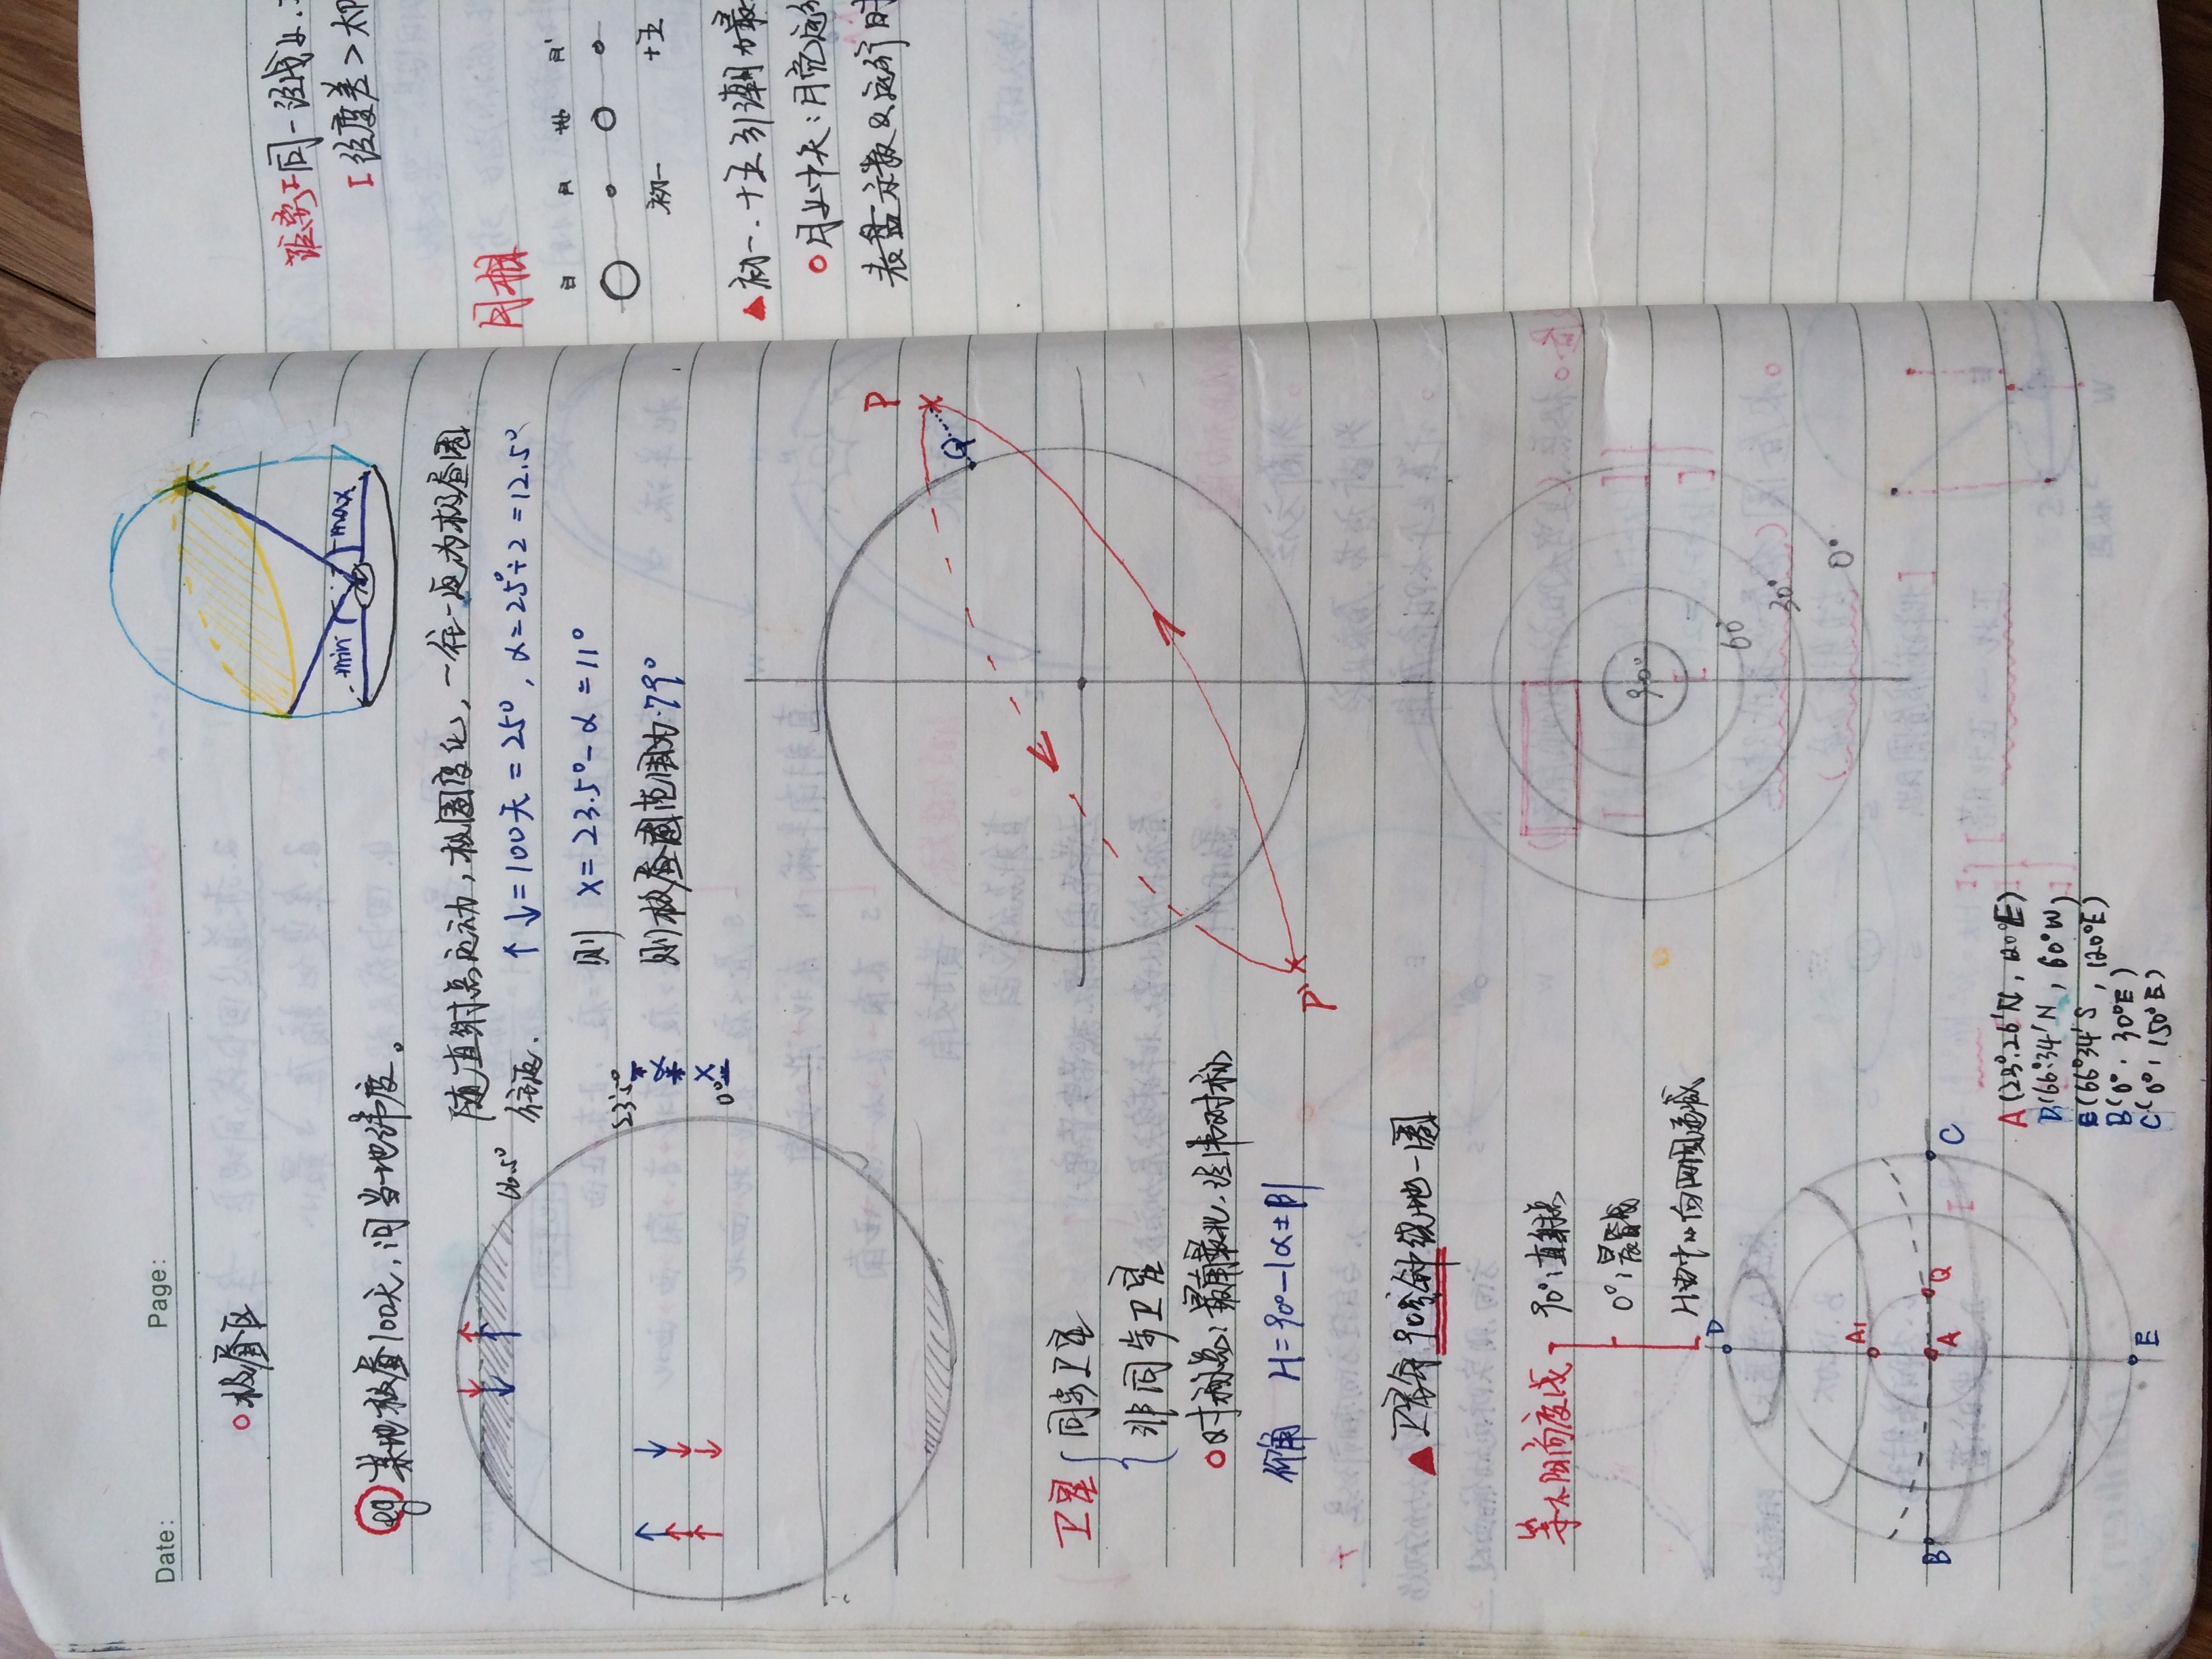 Date:
Page:
极昼区
min
max
eg 某地极昼100天,问当地纬度。
随直射点运动,极圈变化,一往一返为极昼圈
往返.
↑↓=100天=25°, α=25°÷2=12.5°
则 x=23.5°-α=11°
则极昼圈范围为79°
66.5°
23.5°
α
x
0°
P
Q
P'
卫星
同步卫星
非同步卫星
对称点:最南最北.经纬对称
仰角 H=90°-|α±β|
▲卫星每90分钟绕地一圈
等太阳高度线
90°:直射点
0°:晨昏线
H由中心向四周递减
90°
60°
30°
0°
D
A₁
B
A
Q
C
E
A(23°26'N, 120°E)
D(66°34'N, 60°W)
E(66°34'S, 120°E)
B(0°, 30°E)
C(0°, 150°E)
距离
同一经线上
经度差>
月相
日 月 地 月'
初一 十五
▲初一.十五引潮力最
月上中天:月亮
表盘示数&运行时